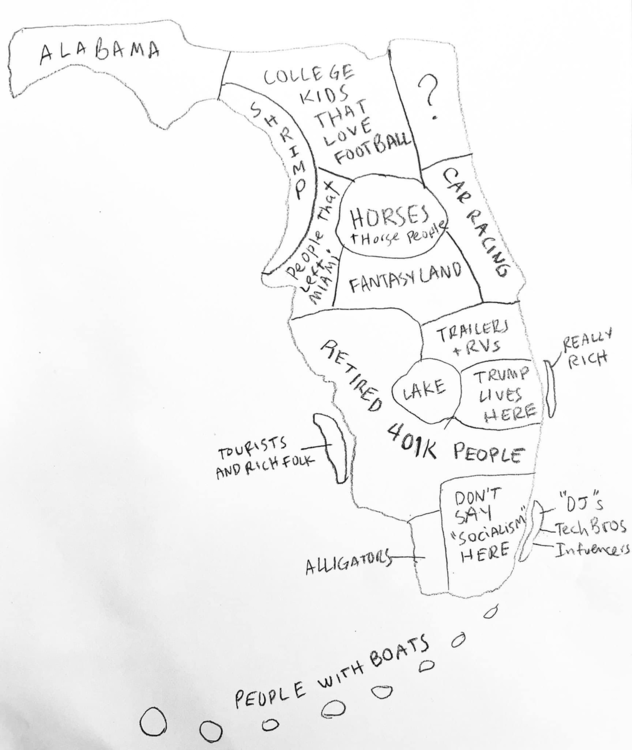 ALABAMA
COLLEGE
KIDS
THAT
LOVE
FOOTBALL
?
SHRIMP
CAR RACING
HORSES
+ Horse People
People That
Left
MIAMI
FANTASY LAND
TRAILERS
+ RVs
REALLY
RICH
RETIRED
401K PEOPLE
LAKE
TRUMP
LIVES
HERE
TOURISTS
AND RICH FOLK
DON'T
SAY
"SOCIALISM"
HERE
"DJ"s
Tech Bros
Infuencers
ALLIGATORS
PEOPLE WITH BOATS